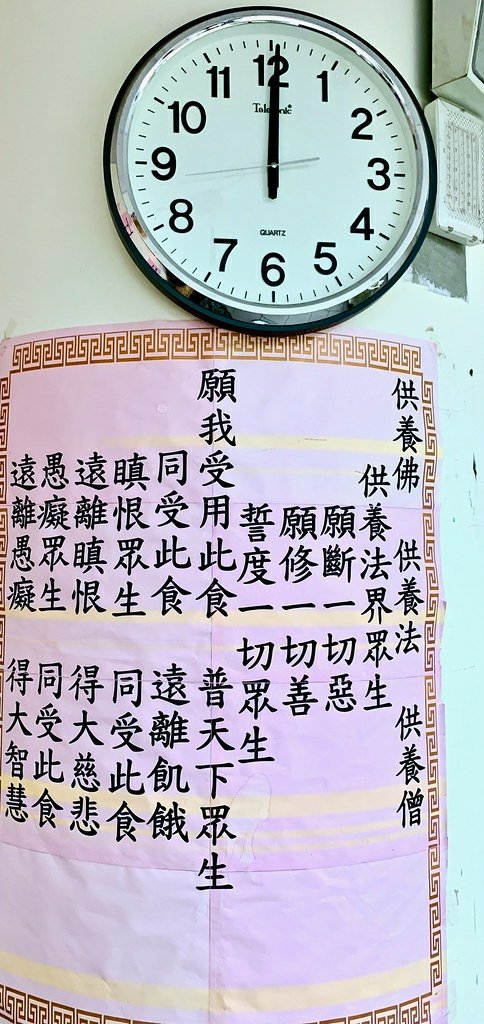 12
1
2
3
4
5
6
7
8
9
10
11
QUARTZ
供養佛 供養法 供養僧
供養法界眾生
願斷一切惡
願修一切善
誓度一切眾生
願我受用此食 普天下眾生
同受此食 遠離飢餓
瞋恨眾生 同受此食
遠離瞋恨 得大慈悲
愚癡眾生 同受此食
遠離愚癡 得大智慧